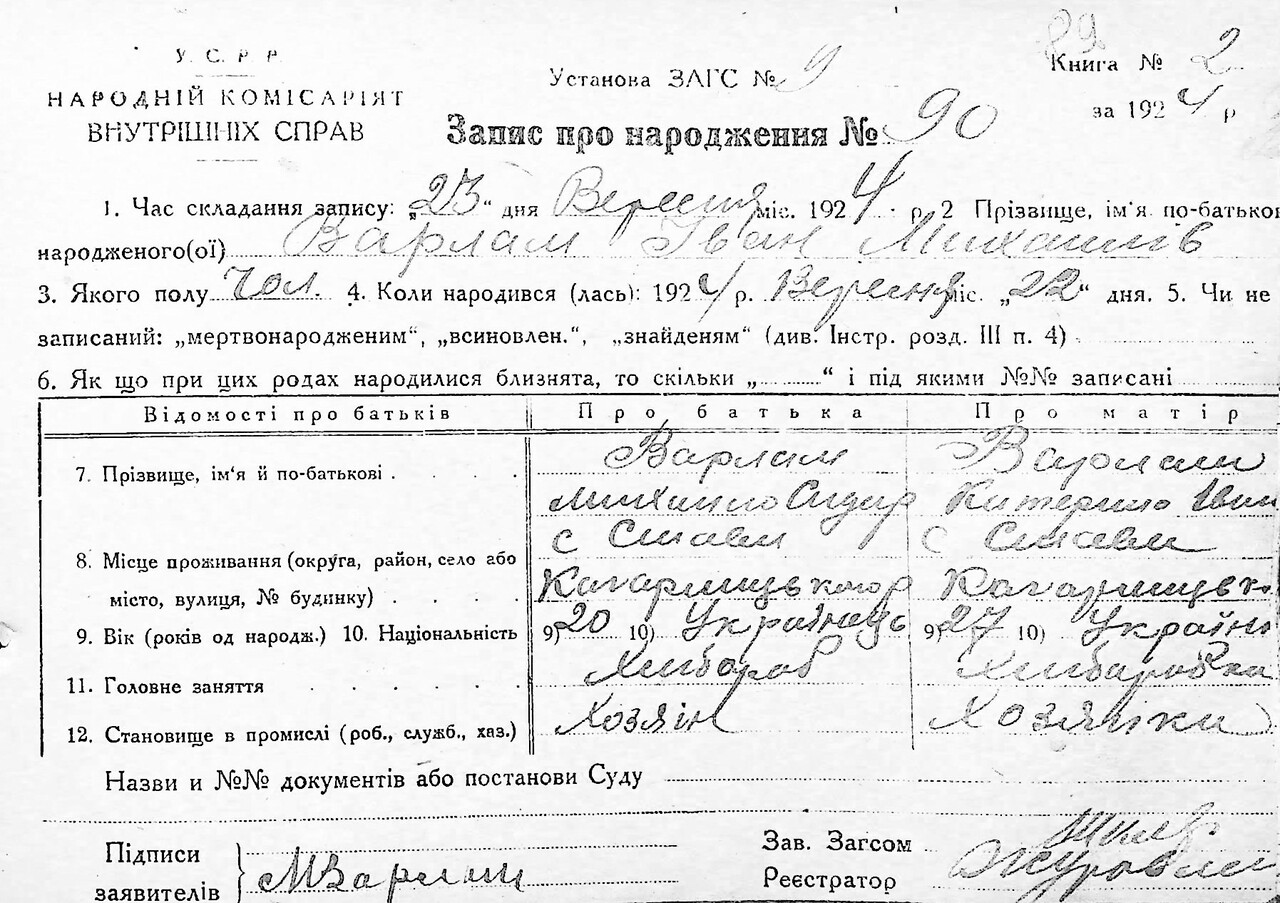 У. С. Р. Р.
НАРОДНІЙ КОМІСАРІЯТ
ВНУТРІШНІХ СПРАВ
Установа ЗАГС № 9
89
Книга № 2
за 1924 р
Запис про народження № 90
1. Час складання запису: „23“ дня Вересня міс. 1924 р. 2 Прізвище, ім'я по-батькові
народженого(ої) Варлам Іван Михайлів
3. Якого полу Чол. 4. Коли народився (лась): 1924 р. Вересня міс. „22“ дня. 5. Чи не
записаний: „мертвонародженим“, „всиновлен.“, „знайденям“ (див. Інстр. розд. III п. 4)
6. Як що при цих родах народилися близнята, то скільки „ “ і під якими №№ записані
Відомості про батьків Про батька Про матір
7. Прізвище, ім'я й по-батькові Варлам Варлам
Михайло Сидор Катерина Іван
8. Місце проживання (округа, район, село або с Стави с Стави
місто, вулиця, № будинку) Кагарлицького р Кагарлицько
9. Вік (років од народж.) 10. Національність 9) 20 10) Українець 9) 27 10) Украін
11. Головне заняття Хлібороб Хліборобка
12. Становище в промислі (роб., служб., хаз.) Хозяін Хозяйка
Назви и №№ документів або постанови Суду
Підписи
заявителів МВарлам
Зав. Загсом
Реєстратор